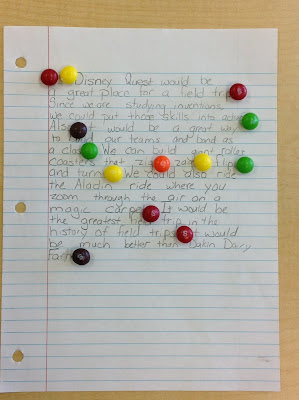 Disney Quest would be
great place for a field trip
Since we are studying inventions,
we could put those skills into
Also would be a great way
to our teams and bond as
a We can build roller
coasters that zig flip
and We could also ride
the Aladin ride where you
zoom through the air on a
magic It would be
the greatest trip in the
history of field trips would
be much better than Dakin Dary